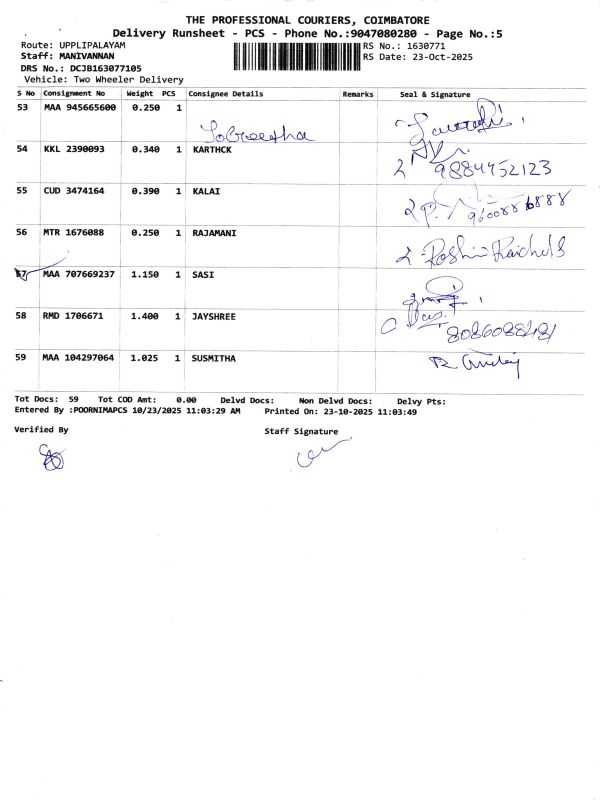 THE PROFESSIONAL COURIERS, COIMBATORE
Delivery Runsheet - PCS - Phone No.:9047080280 - Page No.:5
Route: UPPLIPALAYAM RS No.: 1630771
Staff: MANIVANNAN RS Date: 23-Oct-2025
DRS No.: DCJB163077105
Vehicle: Two Wheeler Delivery
S No Consignment No Weight PCS Consignee Details Remarks Seal & Signature
53 MAA 945665600 0.250 1
54 KKL 2390093 0.340 1 KARTHCK 9884452123
55 CUD 3474164 0.390 1 KALAI
56 MTR 1676088 0.250 1 RAJAMANI
57 MAA 707669237 1.150 1 SASI
58 RMD 1706671 1.400 1 JAYSHREE
59 MAA 104297064 1.025 1 SUSMITHA
Tot Docs: 59 Tot COD Amt: 0.00 Delvd Docs: Non Delvd Docs: Delvy Pts:
Entered By :POORNIMAPCS 10/23/2025 11:03:29 AM Printed On: 23-10-2025 11:03:49
Verified By Staff Signature